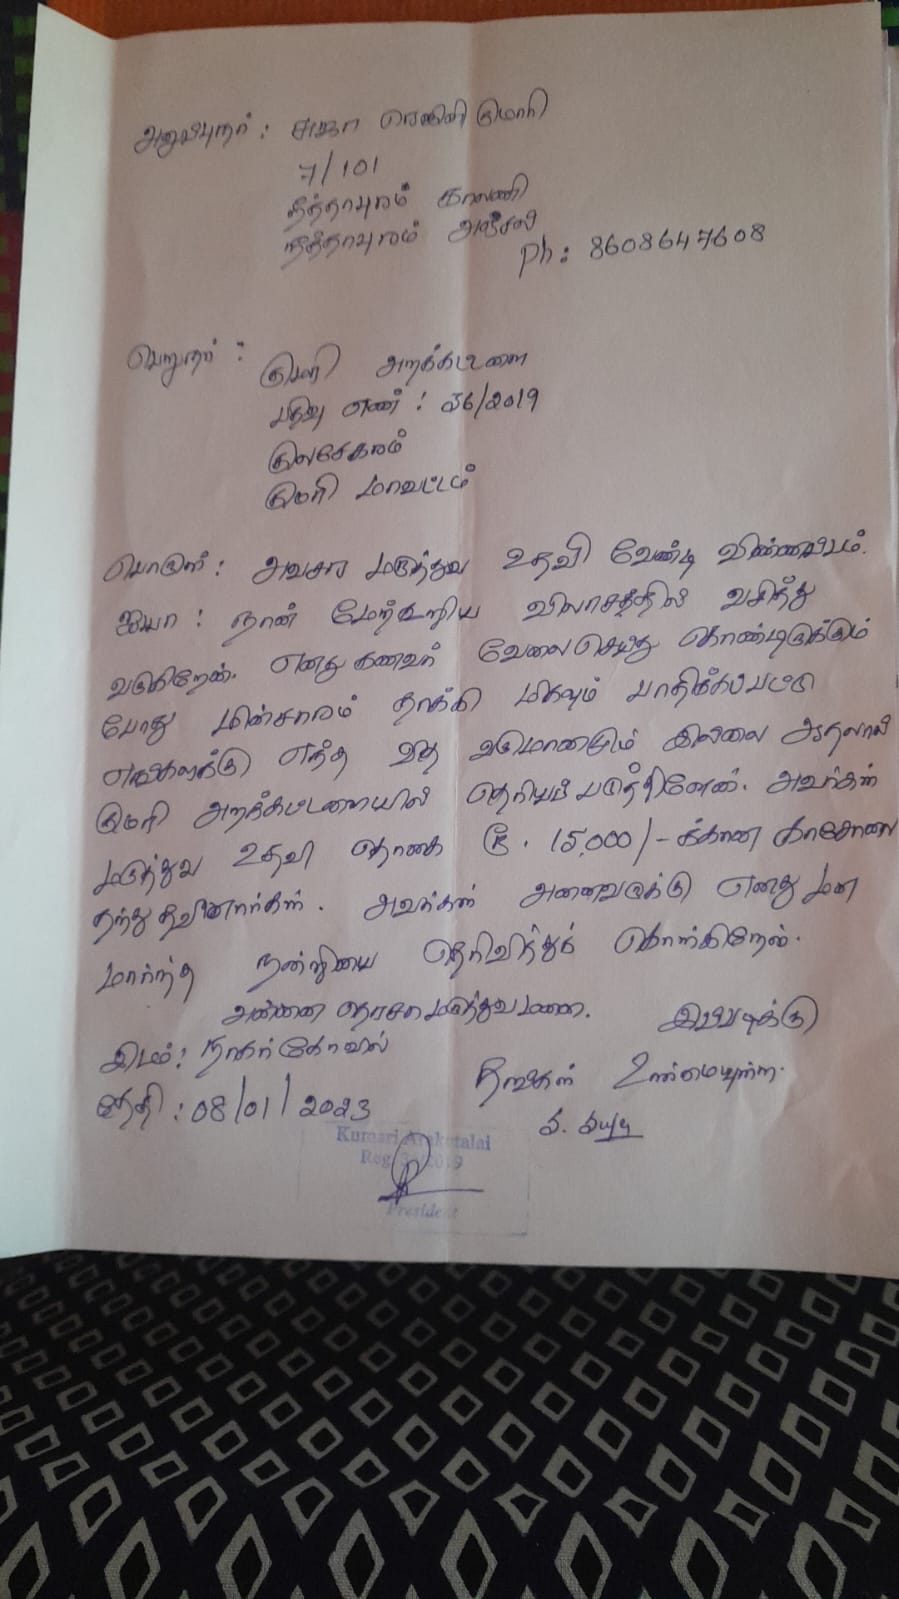 அனுப்புநர் : சுஜா குமாரி
7/101
சித்தாபுரம் காலனி
சித்தாபுரம் அஞ்சல்
Ph : 8608647608
பெறுநர் :
குமரி அறக்கட்டளை
பதிவு எண் : 36/2019
குலசேகரம்
குமரி மாவட்டம்
பொருள் : அவசர மருத்துவ உதவி வேண்டி விண்ணப்பம்.
ஐயா : நான் மேற்கூறிய விலாசத்தில் வசித்து
வருகிறேன். எனது கணவர் வேலை செய்து கொண்டிருக்கும்
போது மின்சாரம் தாக்கி மிகவும் பாதிக்கப்பட்டு
எங்களுக்கு எந்த வித வருமானமும் இல்லை ஆதலால்
குமரி அறக்கட்டளையில் தெரியப்படுத்தினேன். அவர்கள்
மருத்துவ உதவி தொகை ரூ. 15,000/- க்கான காசோலை
தந்து உதவினார்கள். அவர்கள் அனைவருக்கு எனது மன
மார்ந்த நன்றியை தெரிவித்துக் கொள்கிறேன்.
அன்னை தெரசா மருத்துவமனை.
இப்படிக்கு
இடம் : நாகர்கோவில்
தங்கள் உண்மையுள்ள.
தேதி : 08/01/2023
S. Suja
Kumari Arakatalai
Reg. 36/2019
President